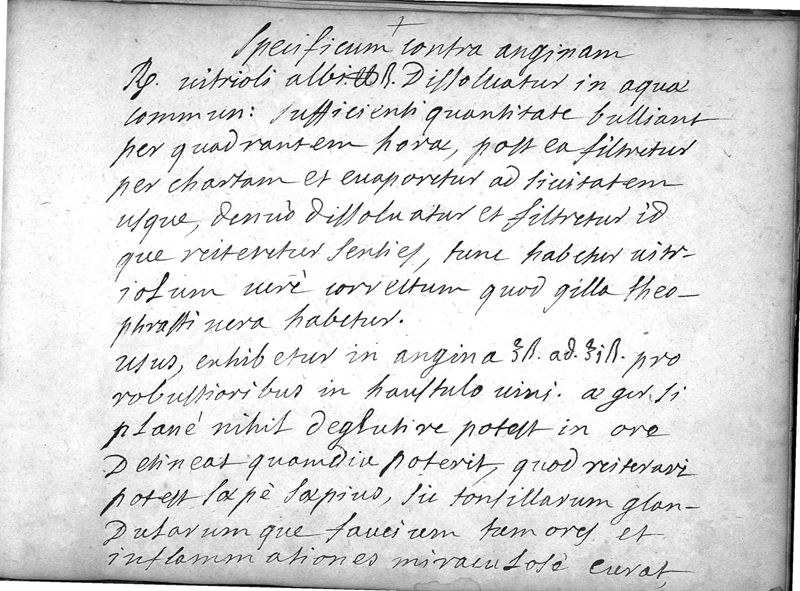 Specificum contra anginam
℞. vitrioli albi. ℔ ß. Dissolvatur in aqua
commun: sufficienti quantitate bulliant
per quadrantem horæ, post ea filtretur
per chartam et evaporetur ad sicitatem
usque, denuò dissolvatur et filtretur id
que reiteretur senties, tunc habetur vitr-
iolum verè correctum quod gilla theo-
phrasti vera habetur.
usus, exhibetur in angina ʒß. ad. ʒiß. pro
robustioribus in haustulo vini. æger si
planè nihil deglutire potest in ore
Detineat quamdiu poterit, quod reiterari
potest sæpè sæpius, sic tonsillarum glan-
Dularum que faucium tumores et
inflammationes miraculosè curat,